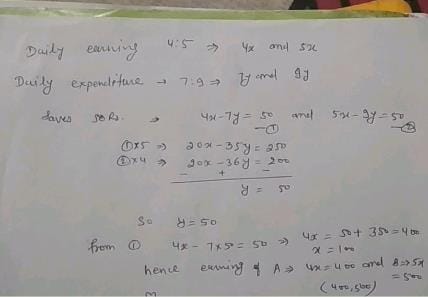 Daily earning 4:5 ⇒ 4x and 5x
Daily expenditure → 7:9 ⇒ 7y and 9y
saves 50Rs. → 4x-7y = 50 —① and 5x-9y=50 —②
①×5 ⇒ 20x-35y = 250
②×4 ⇒ 20x-36y = 200
- + -
y = 50
So y=50
from ① 4x - 7×50 = 50 ⇒ 4x = 50+350=400
x = 100
hence earning of A ⇒ 4x=400 and B ⇒ 5x
= 500
(400,500)